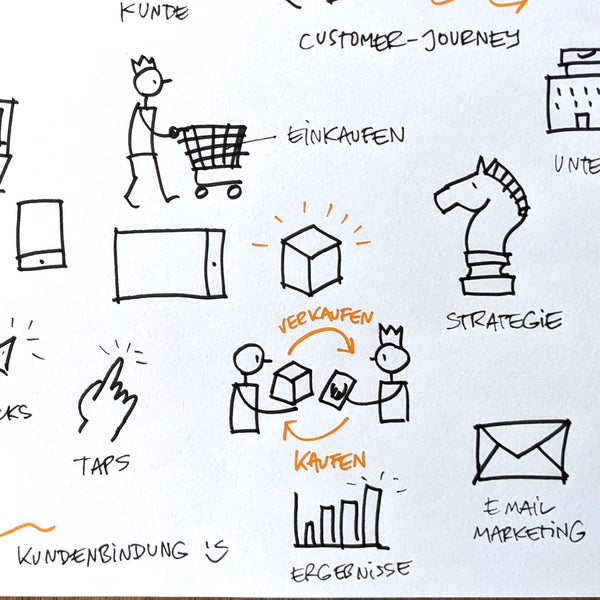 KUNDE
CUSTOMER-JOURNEY
EINKAUFEN
UNTE
STRATEGIE
VERKAUFEN
KAUFEN
CKS
TAPS
EMAIL
MARKETING
KUNDENBINDUNG
ERGEBNISSE